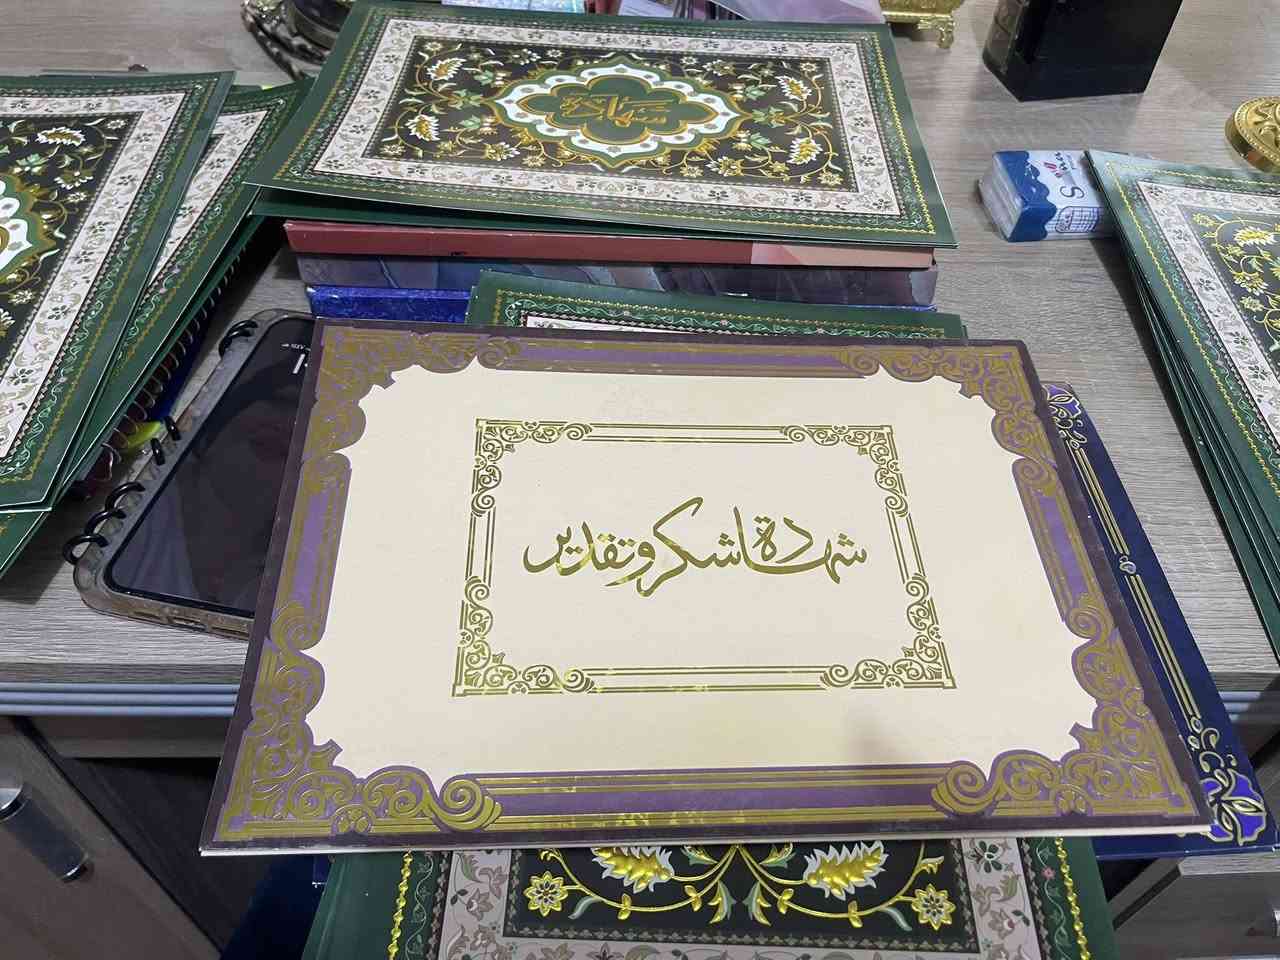 شهادة
شهادة شكر وتقدير